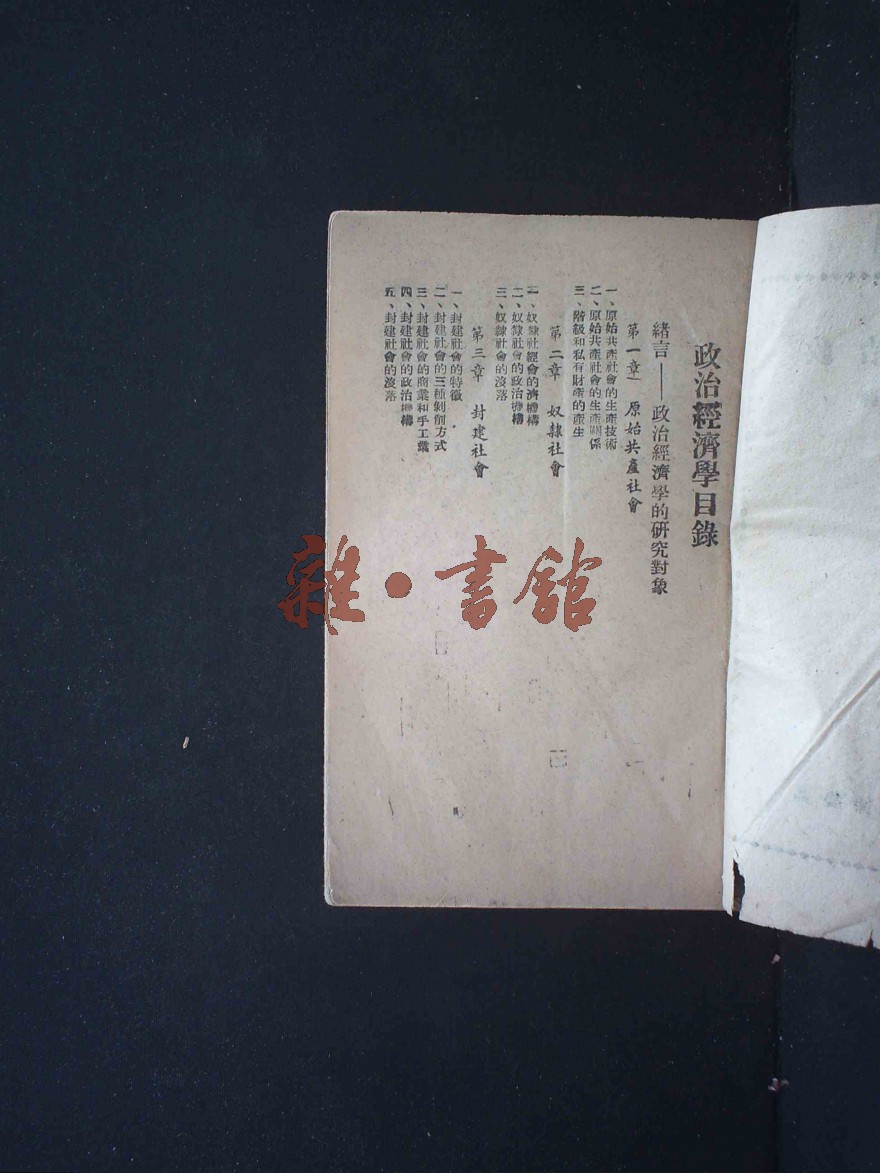 政治經濟學目錄
緒言——政治經濟學的研究對象
第一章 原始共產社會
一、原始共產社會的生產技術
二、原始共產社會的生產關係
三、階級和私有財產的產生
第二章 奴隸社會
一、奴隸社經會的濟機構
二、奴隸社會的政治機構
三、奴隸社會的沒落
第三章 封建社會
一、封建社會的特徵
二、封建社會的三種剝削方式
三、封建社會的商業和手工業
四、封建社會的政治機構
五、封建社會的沒落
雜·書館